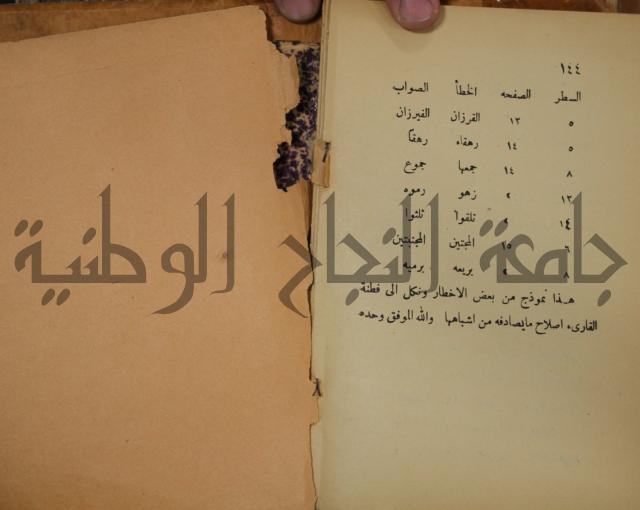 ١٤٤
السطر الصفحه الخطأ الصواب
٥ ١٣ القرزان الفيرزان
٥ ١٤ رهقاء رهقاً
٨ ١٤ جمعها جموع
١٣ ٢ زهو رموه
١٤ ٢ تلقوا ثلثوا
٦ ١٥ المجتين المجنبتين
٨ ٢ بريعه برميه
هـذا نموذج من بعض الاخطار ونكل الى فطنة
القارىء اصلاح مايصادفه من اشباهها والله الموفق وحده
جامعة النجاح الوطنية